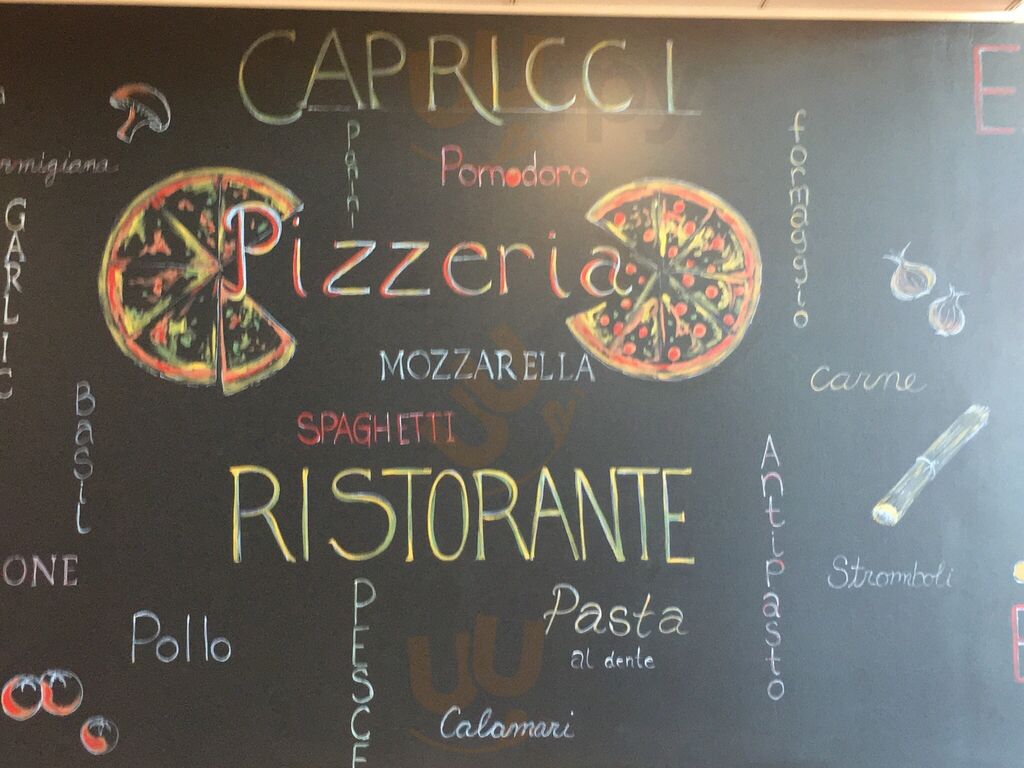 CAPRICCI
E
Panini
Pomodoro
formaggio
rmigiana
GARLIC
Pizzeria
MOZZARELLA
carne
Basil
SPAGHETTI
Antipasto
RISTORANTE
ONE
Stromboli
PESCE
Pasta
al dente
Pollo
Calamari